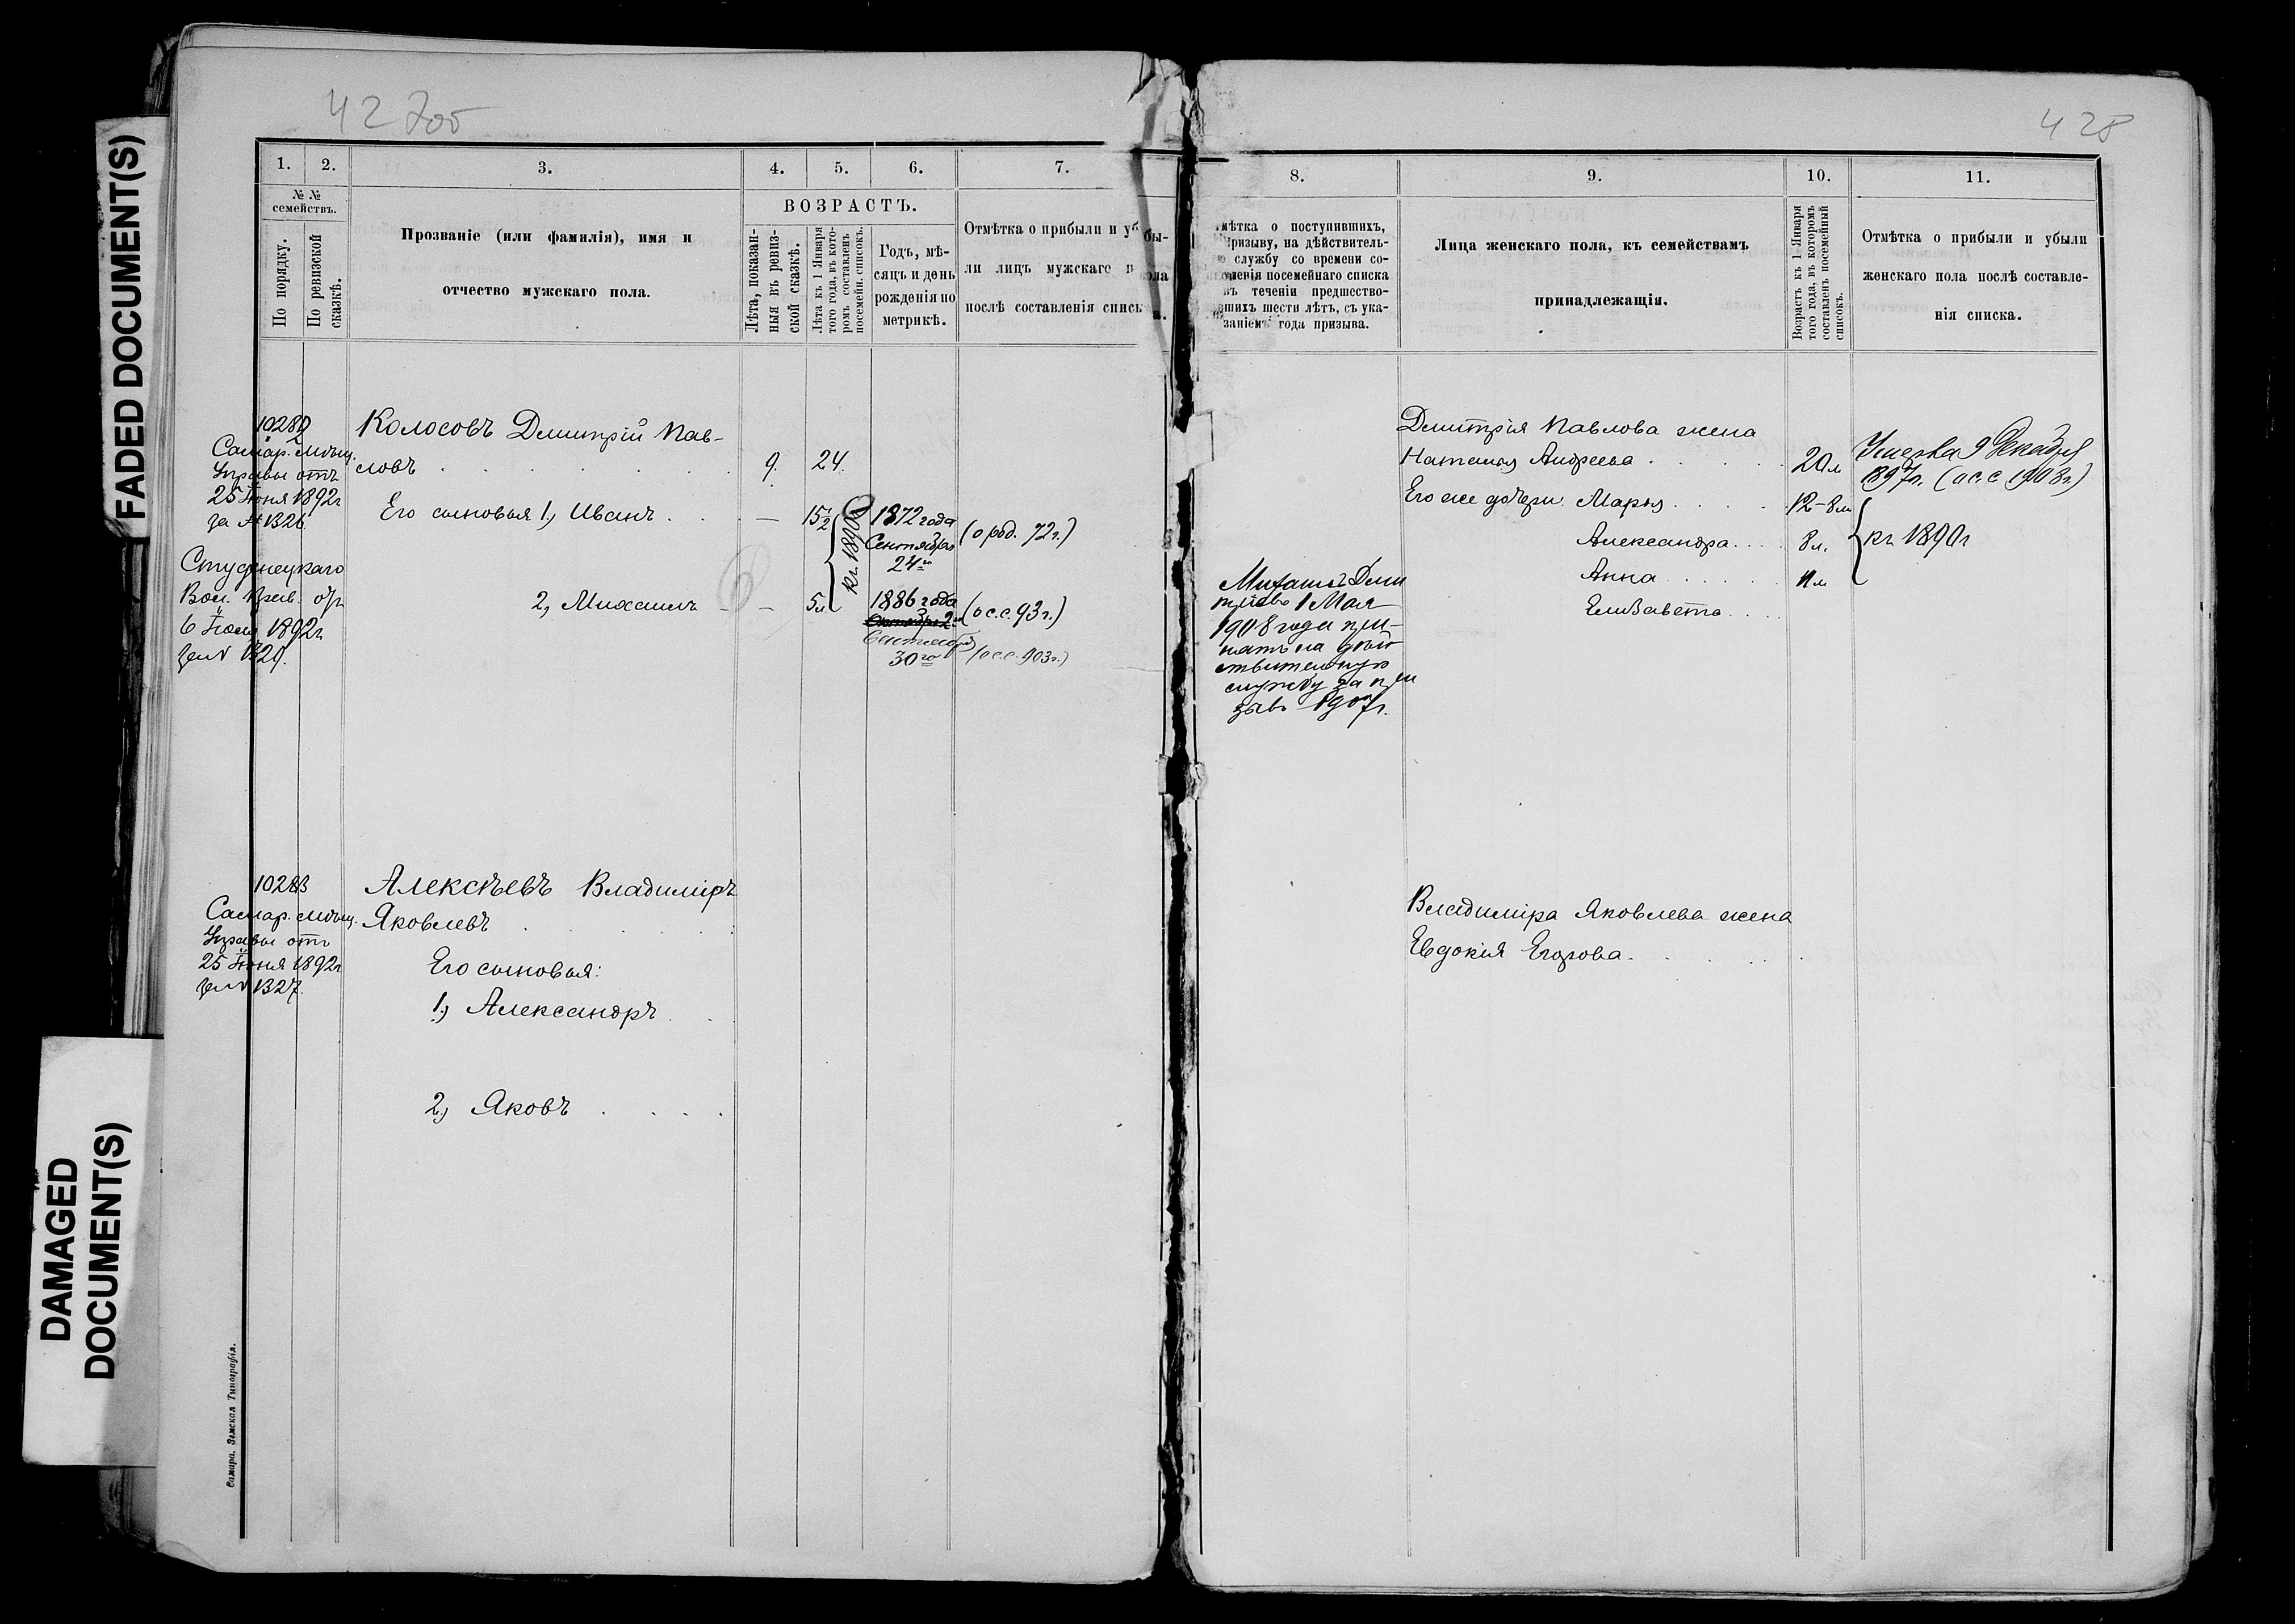 FADED DOCUMENT(S)
DAMAGED
DOCUMENT(S)
427об
1. 2. 3. 4. 5. 6. 7.
№ №
семействъ.
По порядку.
По ревизской
сказкѣ.
Прозваніе (или фамилія), имя и
отчество мужскаго пола.
ВОЗРАСТЪ.
Лѣта, показан-
ныя въ ревиз-
ской сказкѣ.
Лѣта къ 1 Января
того года, въ кото-
ромъ составленъ
посемейн. списокъ.
Годъ, мѣ-
сяцъ и день
рожденія по
метрикѣ.
Отмѣтка о прибыли и убы-
ли лицъ мужскаго пола
послѣ составленія списка.
10282
Самар. мѣщ.
Управы отъ
25 Іюня 1892г
за № 1326
Студенецкаго
Вол. Прав. отъ
6 Іюля 1892г
за №
Колосовъ Дмитрій Пав-
ловъ 9. 24.
Его сыновья 1, Иванъ — 15½ 1872 года (о род. 72 г.)
Сентября
24го
къ 1890
2, Михаилъ — 5л 1886 года (о с.с. 93 г.)
Сентября
30го (о с.с. 903 г.)
10283
Самар. мѣщ.
Управы отъ
25 Іюня 1892г
за № 1327.
Алексѣевъ Владиміръ
Яковлевъ
Его сыновья:
1, Александръ
2, Яковъ
Самара. Земская Типографія.
428
8. 9. 10. 11.
Отмѣтка о поступившихъ,
по призыву, на дѣйствитель-
ную службу со времени со-
ставленія посемейнаго списка
въ теченіи предшество-
вавшихъ шести лѣтъ, съ ука-
заніемъ года призыва.
Лица женскаго пола, къ семействамъ
принадлежащія.
Возрастъ къ 1 Января
того года, въ которомъ
составленъ посемейный
списокъ.
Отмѣтка о прибыли и убыли
женскаго пола послѣ составле-
нія списка.
Дмитрія Павлова жена
Наталья Андреева 20л
Умерла 9 Декабря
1897г. (о с.с 1903г.)
Его же дочери: Марья 12-8м
Александра 8л.
къ 1890г
Анна
Елизавета
Михаилъ Дми
тріевъ 1 Мая
1908 года при-
нятъ на дѣй
ствительную
службу за при
зывъ 1907г.
Владиміра Яковлева жена
Евдокія Егорова